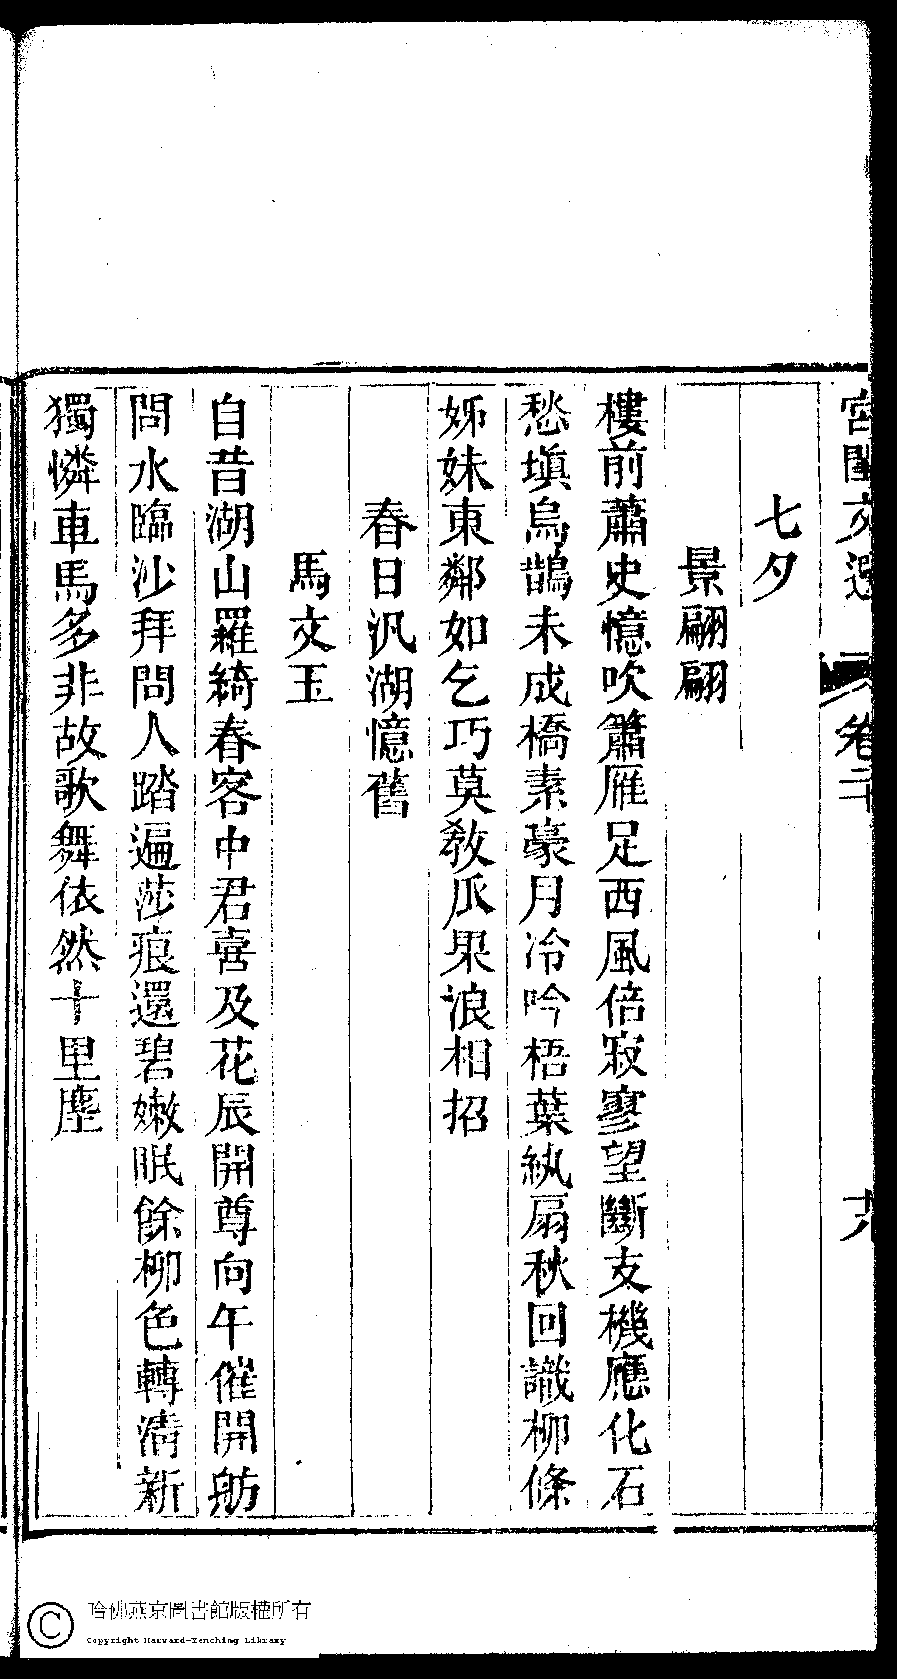 宮閨文選 卷二十 六
七夕
景翩翩
樓前蕭史憶吹簫雁足西風倍寂寥望斷支機應化石
愁塡烏鵲未成橋素豪月冷吟梧葉紈扇秋回識柳條
姊妹東鄰如乞巧莫教瓜果浪相招
春日汎湖憶舊
馬文玉
自昔湖山羅綺春客中君喜及花辰開尊向午催開舫
問水臨沙拜問人踏遍莎痕還碧嫩眠餘柳色轉清新
獨憐車馬多非故歌舞依然十里塵
哈佛燕京圖書館版權所有
Copyright Harvard-Yenching Library